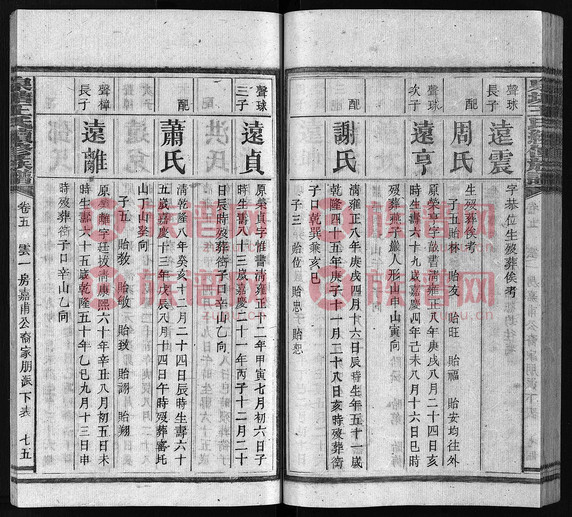 聲球長子
遠震
字恭位生歿葬俟考
配
周氏
生歿葬俟考
子五 貽林 貽玫 貽旺 貽福 貽安均往外
聲球次子
遠亨
原榮亨字啟書清雍正八年庚戌八月二十四日亥
時生壽六十九歲嘉慶四年己未八月十一日戌時
歿葬燕子巖人形山申山寅向
配
謝氏
清雍正八年庚戌四月十六日辰時生壽五十一歲
乾隆四十五年庚子十一月三十八日亥時歿葬衙
子口乾巽兼亥巳
子三 貽位 貽忠 貽恕
聲球三子
遠貞
原榮貞字惟書清雍正十二年甲寅七月初六日子
時生壽八十三歲嘉慶二十一年丙子十二月二十
日辰時歿葬衙子口辛山乙向
配
蕭氏
清乾隆八年癸亥十二月二十四日辰時生壽六十
五歲嘉慶十三年戊辰八月十四日午時歿葬審坑
山丁山癸向
子五 貽穀 貽敏 貽玻 貽詡 貽翔
聲樟長子
遠離
原榮離字廷拔清康熙六十年辛丑八月初五日未
時生壽六十五歲乾隆五十年乙巳九月十三日申
時歿葬衙子口辛山乙向
卷五 雲一房嘉甫公裔家朋派下表 七五